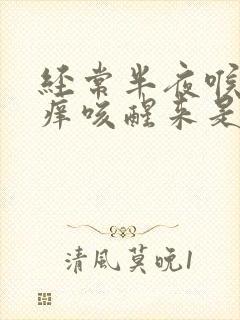 经常半夜喉
痒咳醒来是
清風莫晚1